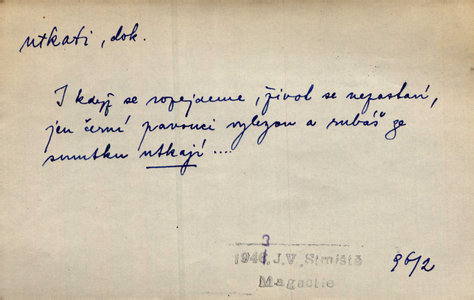 utkati, dok.
I když se rozejdeme, život se nezastaví,
jen černí pavouci vylezou a rubáš ze
smutku utkají ....
3
1946, J.V. Strniště
Magacíle
96/2